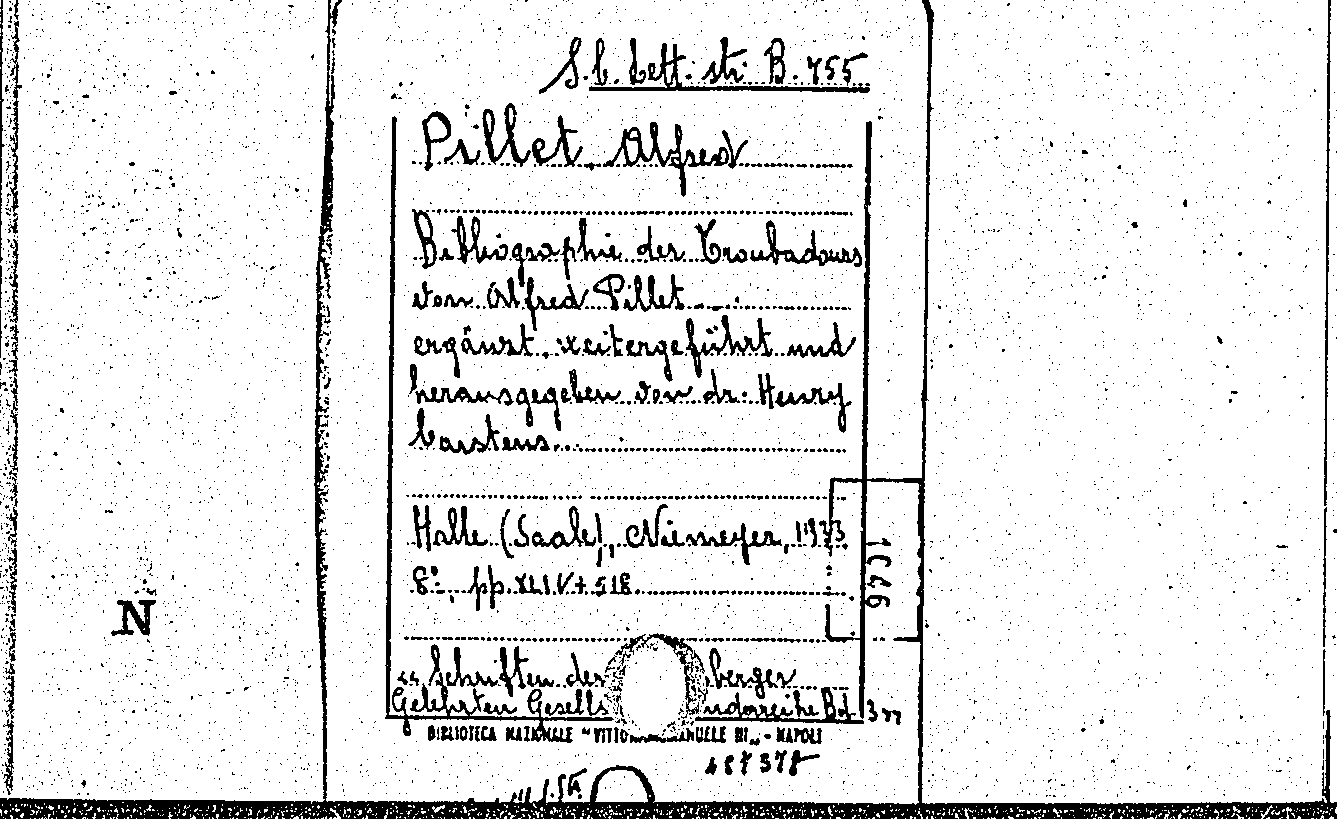 S.b. Lett. str. B. 755
Pillet, Alfred
Bibliographie der Troubadours
von Alfred Pillet ....
ergänzt, weitergeführt und
herausgegeben von dr. Henry
Carstens...
Halle (Saale), Niemeyer, 1933
8°, pp. XLIV + 518.
1046
N
"Schriften der berger
Gelehrten Gesells nderreihe Bd. 3"
BIBLIOTECA NAZIONALE "VITTO ANUELE III„ - NAPOLI
487378